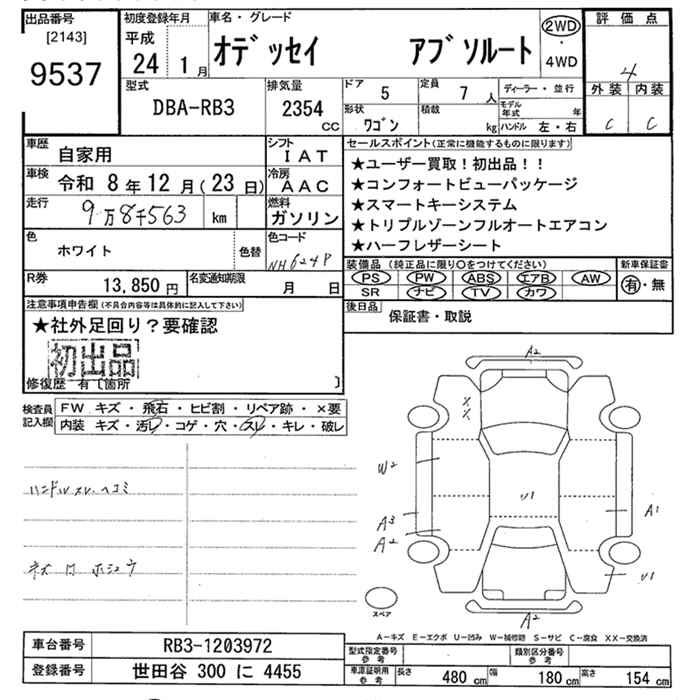 出品番号
[2143]
9537
初度登録年月
平成
24 1月
車名・グレード
オデッセイ アブソルート
2WD
・
4WD
評価点
4
外装 内装
C C
型式
DBA-RB3
排気量
2354
CC
ドア
5
定員
7人
形状
ワゴン
積載
kg
ディーラー・並行
モデル年式 年
ハンドル 左・右
車歴
自家用
シフト
IAT
車検
令和8年12月(23日)
冷房
AAC
走行
9万8千563 km
燃料
ガソリン
色
ホワイト
色替
色コード
NH624P
R券
13,850円
名変通知期限
月 日
セールスポイント(正常に機能するものに限ります)
★ユーザー買取!初出品!!
★コンフォートビューパッケージ
★スマートキーシステム
★トリプルゾーンフルオートエアコン
★ハーフレザーシート
装備品(純正品に限り○をつけてください)
PS PW ABS エアB AW
SR ナビ TV カワ
新車保証書
有・無
後日品
保証書・取説
注意事項申告欄(不具合内容等は具体的に記入して下さい)
★社外足回り?要確認
初出品
修復歴 有〔箇所 〕
検査員
記入欄
FW キズ・飛石・ヒビ割・リペア跡・×要
内装 キズ・汚レ・コゲ・穴・スレ・キレ・破レ
ハンドルスレ.ヘコミ
ネズ ホシュウ
A2
X
X
W2
U1
A3
A2
A1
U1
A2
スペア
A-キズ E-エクボ U-凹み W-補修跡 S-サビ C-腐食 XX-交換済
車台番号
RB3-1203972
登録番号
世田谷 300 に 4455
型式指定番号
参考
類別区分番号
参考
車庫証明用
参考
長さ 480 cm
幅 180 cm
高さ 154 cm